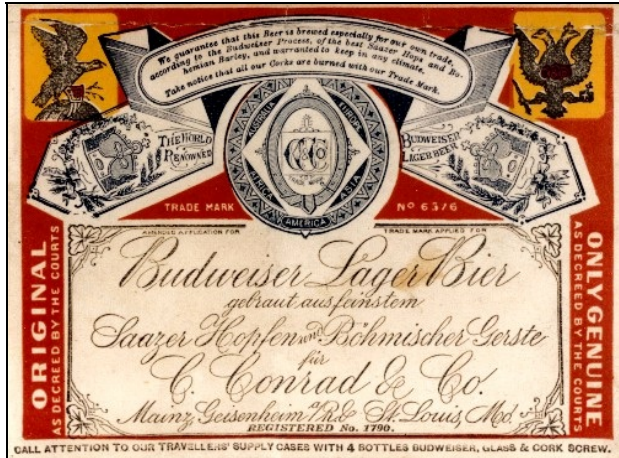 We guarantee that this Beer is brewed especially for our own trade,
according to the Budweiser Process, of the best Saazer Hops and Bo-
hemian Barley, and warranted to keep in any climate.
Take notice that all our Corks are burned with our Trade Mark.
THE WORLD
RENOWNED
AUSTRALIA
EUROPE
CCCo
TRADE MARK
AFRICA
ASIA
AMERICA
BUDWEISER
LAGER BEER
TRADE MARK
No 6376
ORIGINAL
AS DECREED BY THE COURTS
APPLICATION FOR
TRADE MARK APPLIED FOR
Budweiser Lager Bier
gebraut aus feinstem
Saazer Hopfen und Böhmischer Gerste
für
C. Conrad & Co.
Mainz, Geisenheim a/Rh & St. Louis, Mo.
REGISTERED No. 1790.
ONLY GENUINE
AS DECREED BY THE COURTS
CALL ATTENTION TO OUR TRAVELLERS' SUPPLY CASES WITH 4 BOTTLES BUDWEISER, GLASS & CORK SCREW.